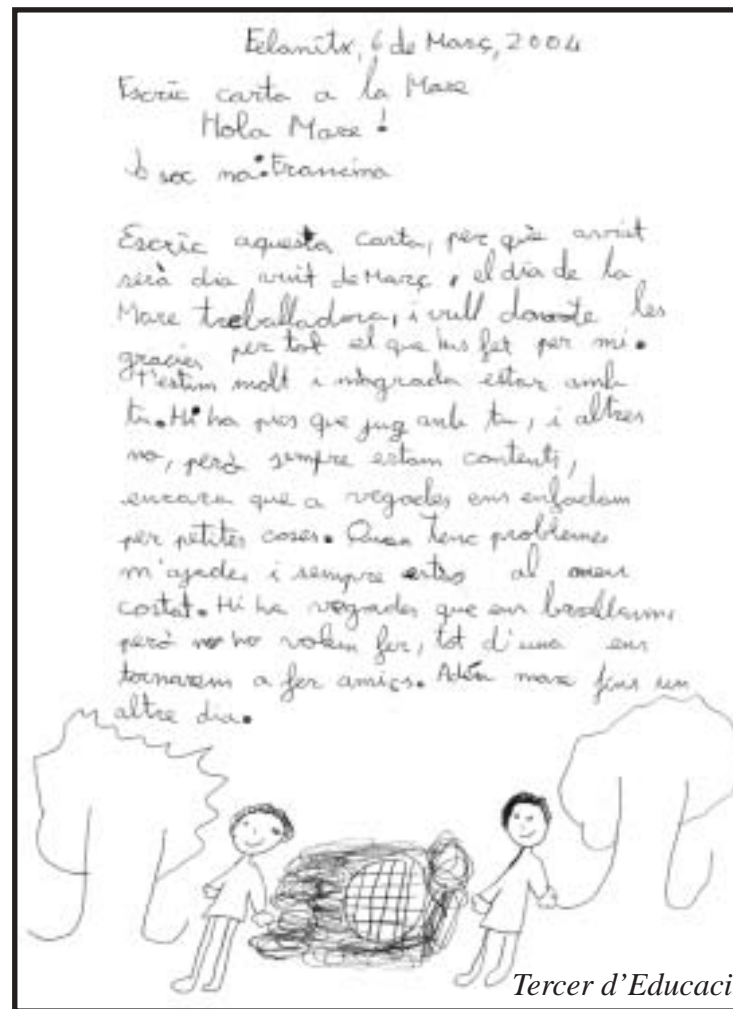 Felanitx, 6 de Març, 2004
Escric carta a la Mare
Hola Mare!
soc na Francina
Escric aquesta carta, per què
serà dia vuit de Març, el dia de la
Mare treballadora, i vull les
gracies per tot el que has fet per mi.
T'estim molt i m'agrada estar amb
tu. Hi ha pics que jug amb tu, i altres
no, però sempre estam contents,
encara que a vegades ens enfadam
per petites coses. Quan tenc problemes
m'ajudes i sempre estas al meu
costat. Hi ha vegades que ens
però no ho volem fer, tot d'una ens
tornarem a fer amics. Adéu mare fins un
altre dia.
Tercer d'Educaci